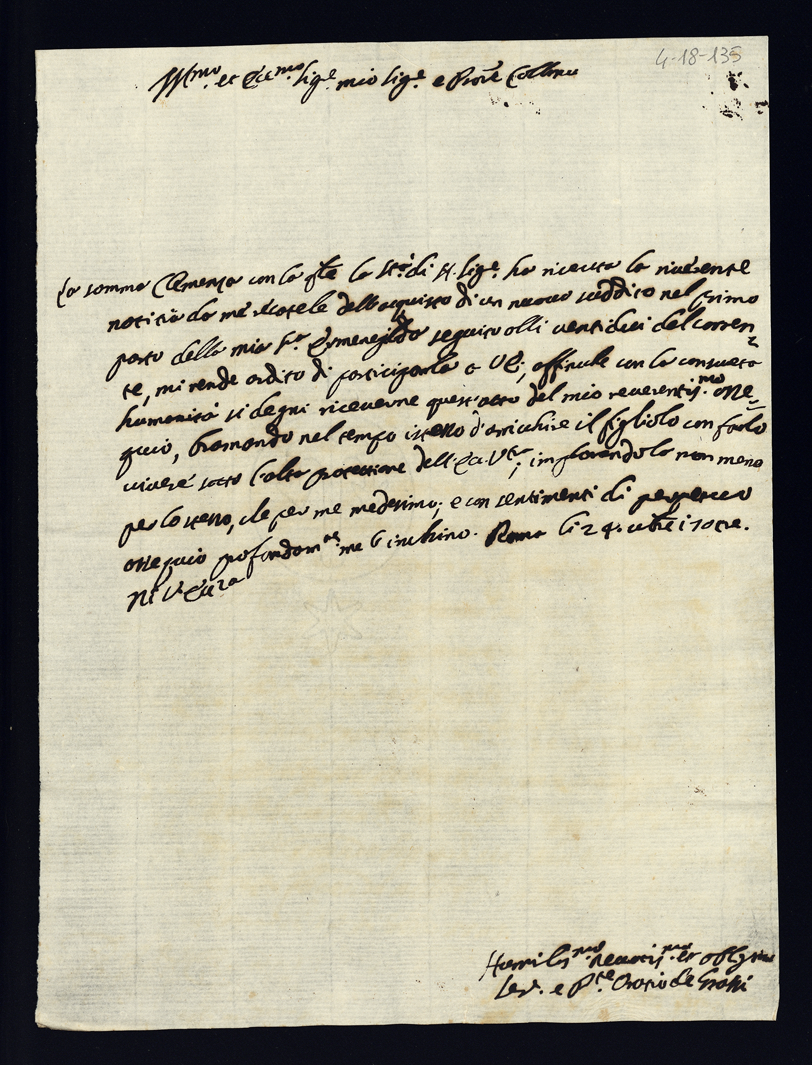 4-18-135
Ill.mo et Ecc.mo Sig.e mio Sig.e e Prõne Coll.mo
La somma Clemenza con la q̃le la St.à di N. Sig.e ha ricevuta la riverente
notitia da me recatele dell'acquisto di un nuovo suddito nel primo
parto della mia S.ra Ermenegilda seguito olli ventidui del corren
te, mi rende ardito di participarla a VE; affinche con la consueta
humanità si degni riceverne quest'atto del mio reverentis.mo osse
quio, bramando nel tempo istesso d'arrichire il figliolo con farlo
vivere sotto l'alta protettione dell'Ecc. V.ra; implorandola non meno
per lo stesso, che per me medesimo; e con sentimenti di perpetuo
ossequio profondam.te me l'inchino. Roma li 24.
Di V. Ecc.za
Humiliss.mo reverentis.mo et obblig.mo
Ser.e e P.te Oratio de